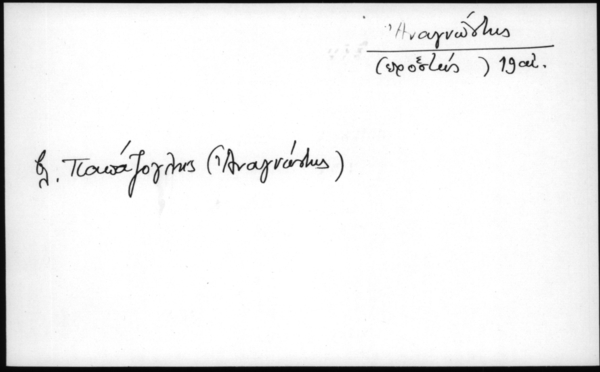 Ἀναγνώστης
(προεστώς) 19 αἰ.
βλ. Παπάζογλης (Ἀναγνώστης)